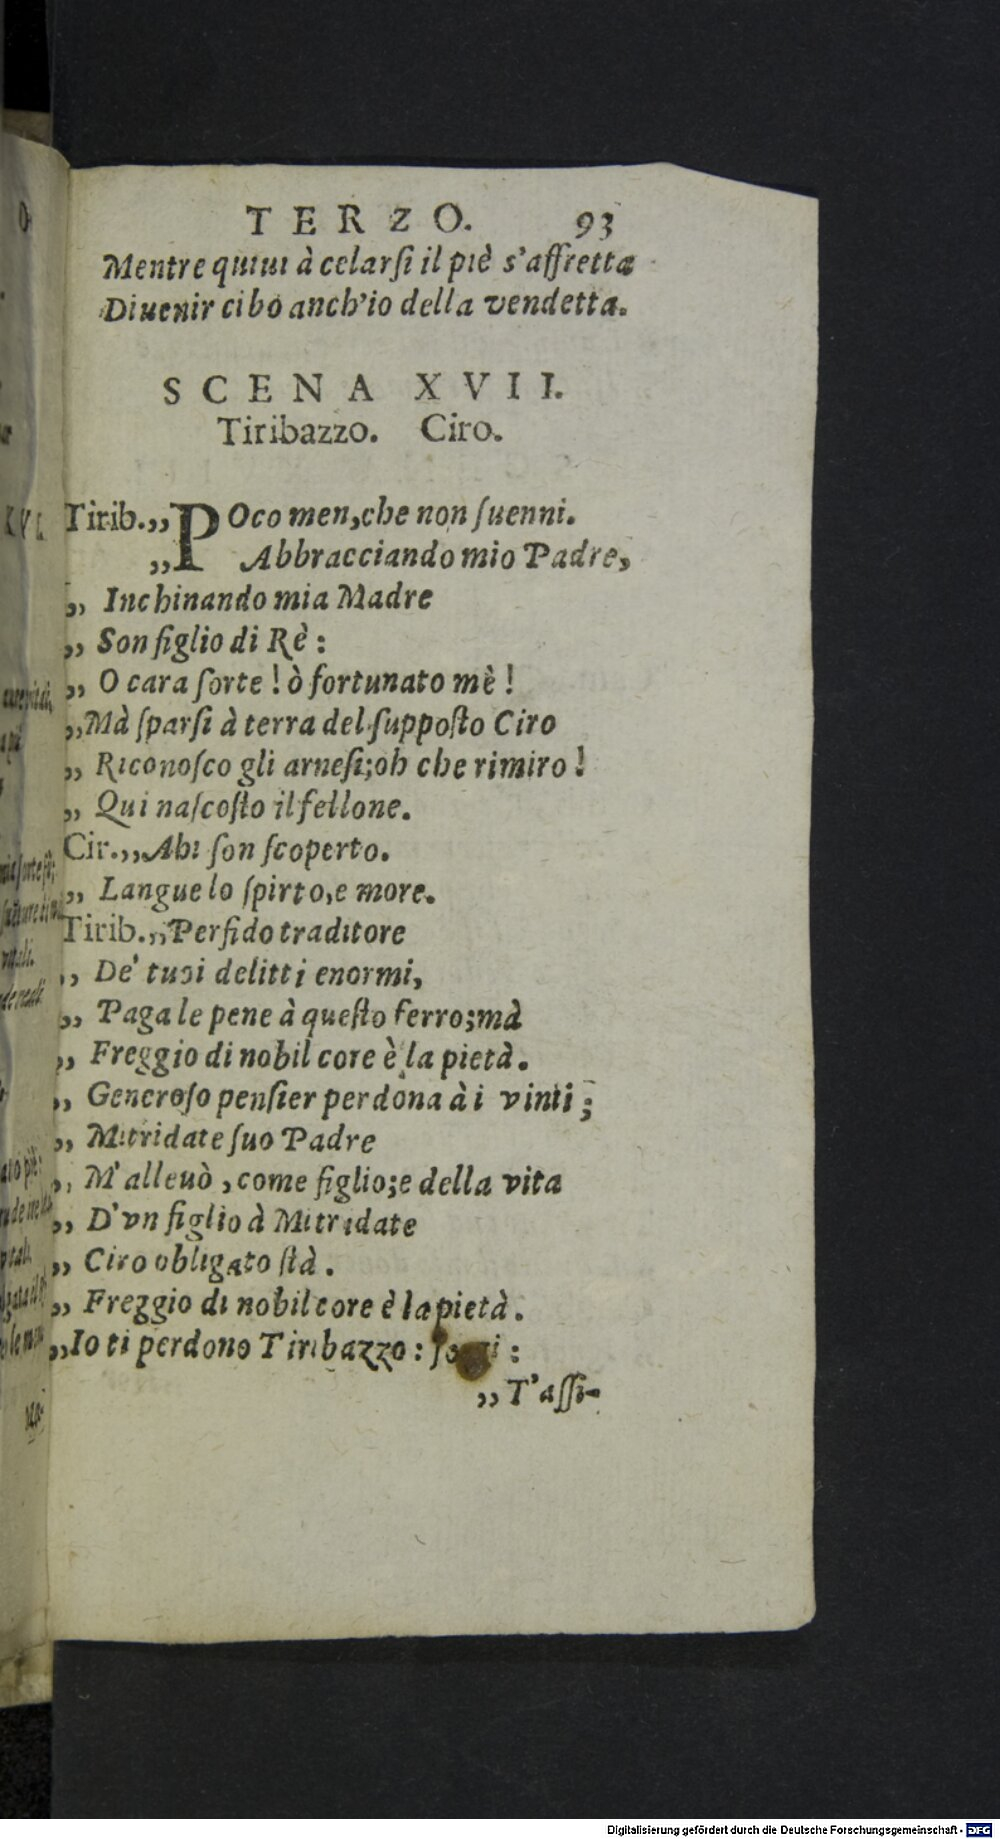 TERZO. 93
Mentre quiui à celarsi il piè s'affretta
Diuenir cibo anch'io della vendetta.
SCENA XVII.
Tiribazzo. Ciro.
Tirib.,, POco men,che non suenni.
,, Abbracciando mio Padre,
,, Inchinando mia Madre
,, Son figlio di Rè :
,, O cara sorte ! ò fortunato mè !
,,Mà sparsi à terra del supposto Ciro
,, Riconosco gli arnesi;oh che rimiro !
,, Qui nascosto il fellone.
Cir.,,Ah! son scoperto.
,, Langue lo spirto,e more.
Tirib.,,Perfido traditore
,, De' tuoi delitti enormi,
,, Paga le pene à questo ferro;mà
,, Freggio di nobil core è la pietà.
,, Generoso pensier perdona à i vinti ;
,, Mitridate suo Padre
,, M'alleuò , come figlio;e della vita
,, D'vn figlio à Mitridate
,, Ciro obligato stà .
,, Freggio di nobil core è la pietà.
,,Io ti perdono Tiribazzo :
,, T'assi-
Digitalisierung gefördert durch die Deutsche Forschungsgemeinschaft - DFG